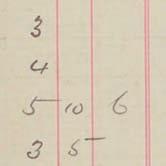 3
4
5 10 6
3 5